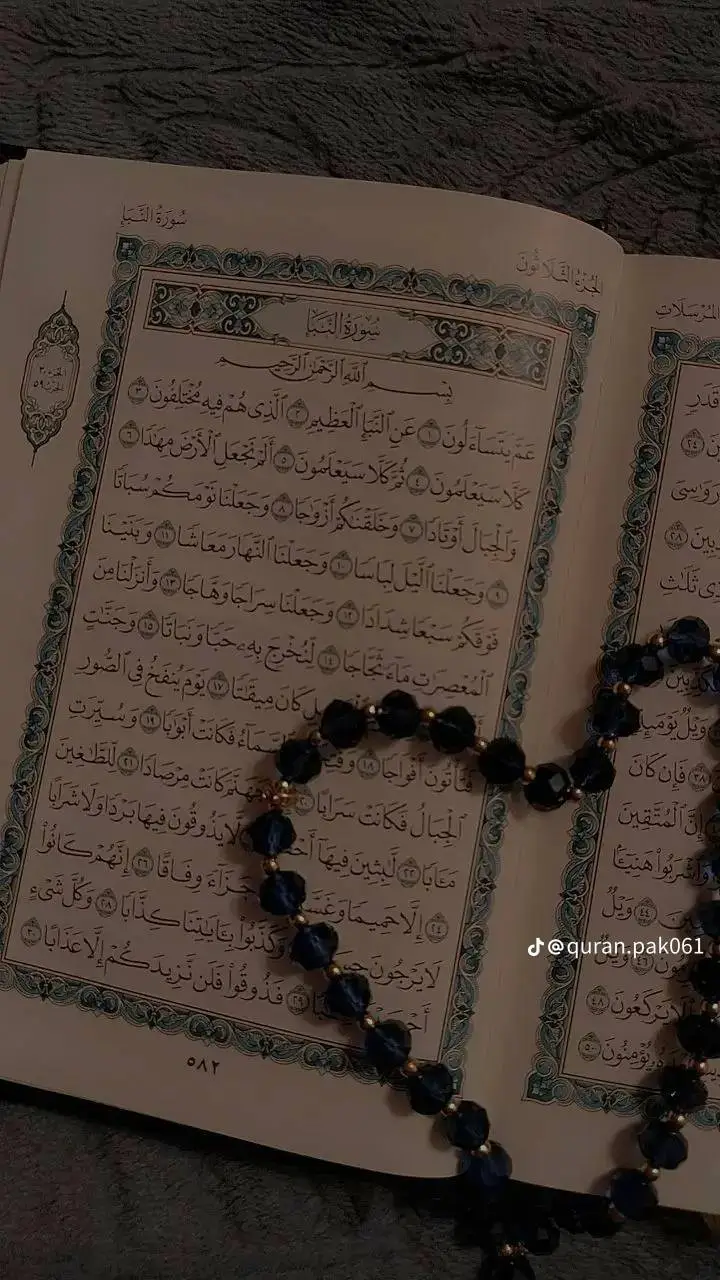 سُورَةُ النَّبَإِ
الجُزْءُ الثَّلَاثُونَ
سُورَةُ النَّبَإِ
بِسْمِ ٱللَّهِ ٱلرَّحْمَٰنِ ٱلرَّحِيمِ
عَمَّ يَتَسَآءَلُونَ ١ عَنِ ٱلنَّبَإِ ٱلْعَظِيمِ ٢ ٱلَّذِى هُمْ فِيهِ مُخْتَلِفُونَ ٣
كَلَّا سَيَعْلَمُونَ ٤ ثُمَّ كَلَّا سَيَعْلَمُونَ ٥ أَلَمْ نَجْعَلِ ٱلْأَرْضَ مِهَٰدًا ٦
وَٱلْجِبَالَ أَوْتَادًا ٧ وَخَلَقْنَٰكُمْ أَزْوَٰجًا ٨ وَجَعَلْنَا نَوْمَكُمْ سُبَاتًا
٩ وَجَعَلْنَا ٱلَّيْلَ لِبَاسًا ١٠ وَجَعَلْنَا ٱلنَّهَارَ مَعَاشًا ١١ وَبَنَيْنَا
فَوْقَكُمْ سَبْعًا شِدَادًا ١٢ وَجَعَلْنَا سِرَاجًا وَهَّاجًا ١٣ وَأَنزَلْنَا مِنَ
ٱلْمُعْصِرَٰتِ مَآءً ثَجَّاجًا ١٤ لِّنُخْرِجَ بِهِۦ حَبًّا وَنَبَاتًا ١٥ وَجَنَّٰتٍ
كَانَ مِيقَٰتًا ١٧ يَوْمَ يُنفَخُ فِى ٱلصُّورِ
فَتَأْتُونَ أَفْوَاجًا ١٨ فَكَانَتْ أَبْوَٰبًا ١٩ وَسُيِّرَتِ
ٱلْجِبَالُ فَكَانَتْ سَرَابًا جَهَنَّمَ كَانَتْ مِرْصَادًا ٢١ لِّلطَّٰغِينَ
مَـَٔابًا ٢٢ لَّٰبِثِينَ فِيهَآ لَّا يَذُوقُونَ فِيهَا بَرْدًا وَلَا شَرَابًا
٢٤ إِلَّا حَمِيمًا جَزَآءً وِفَاقًا ٢٦ إِنَّهُمْ كَانُوا۟
لَا يَرْجُونَ وَكَذَّبُوا۟ بِـَٔايَٰتِنَا كِذَّابًا ٢٨ وَكُلَّ شَىْءٍ
٢٩ فَذُوقُوا۟ فَلَن نَّزِيدَكُمْ إِلَّا عَذَابًا ٣٠
٥٨٢
المُرْسَلَات
٢٤
٢٨
ذِى ثَلَٰثِ
وَيْلٌ يَوْمَئِذٍ
٣٨ فَإِن كَانَ
إِنَّ ٱلْمُتَّقِينَ
وَٱشْرَبُوا۟ هَنِيٓـًٔۢا
٤٤ وَيْلٌ
٤٦ وَيْلٌ
لَا يَرْكَعُونَ ٤٨
يُؤْمِنُونَ ٥٠
@quran.pak061